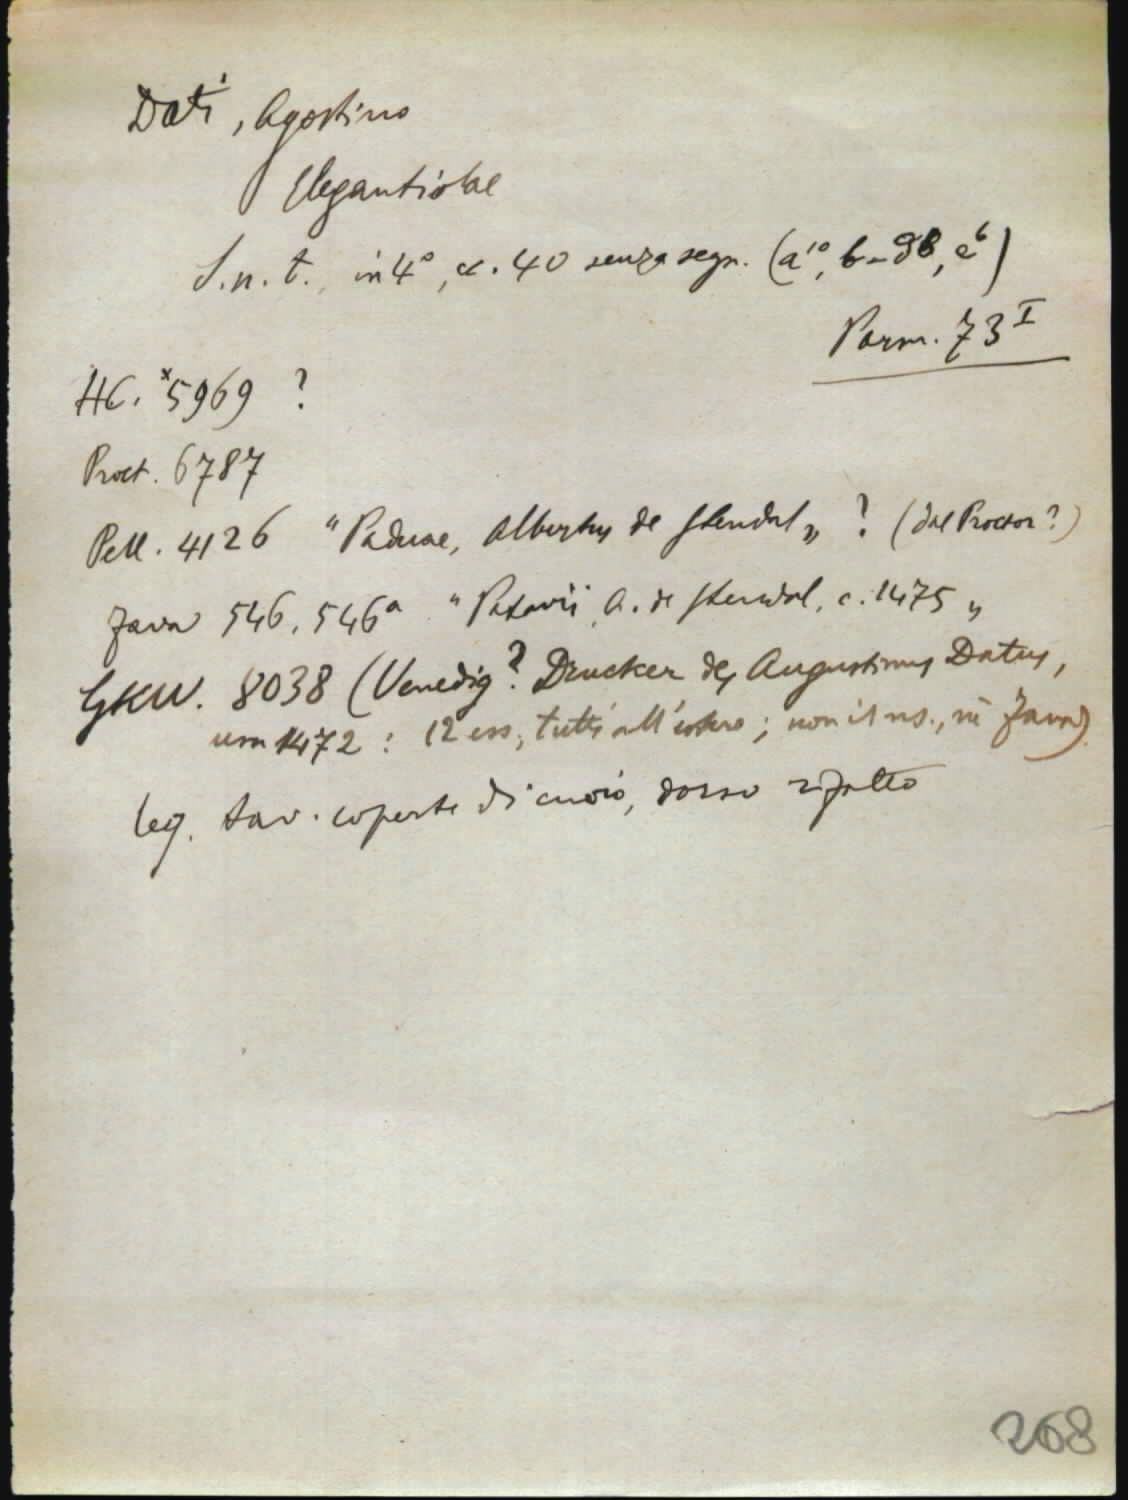 Dati, Agostino
Elegantiolae
S.n.t., in 4°, cc. 40 senza segn. (a¹⁰, b-d⁸, e⁶)
Parm. 73ᴵ
HC. ˣ5969 ?
Proct. 6787
Pell. 4126 "Paduae, Albertus de Stendal„ ? (dal Proctor?)
Fava 546, 546ᵃ "Patavii, A. de Stendal, c. 1475„
GKW. 8038 (Venedig? Drucker des Augustinus Datus,
um 1472 : 12 ess., tutti all'estero; non il ns., nè Fava).
leg. tav. coperte di cuoio, dorso rifatto
268